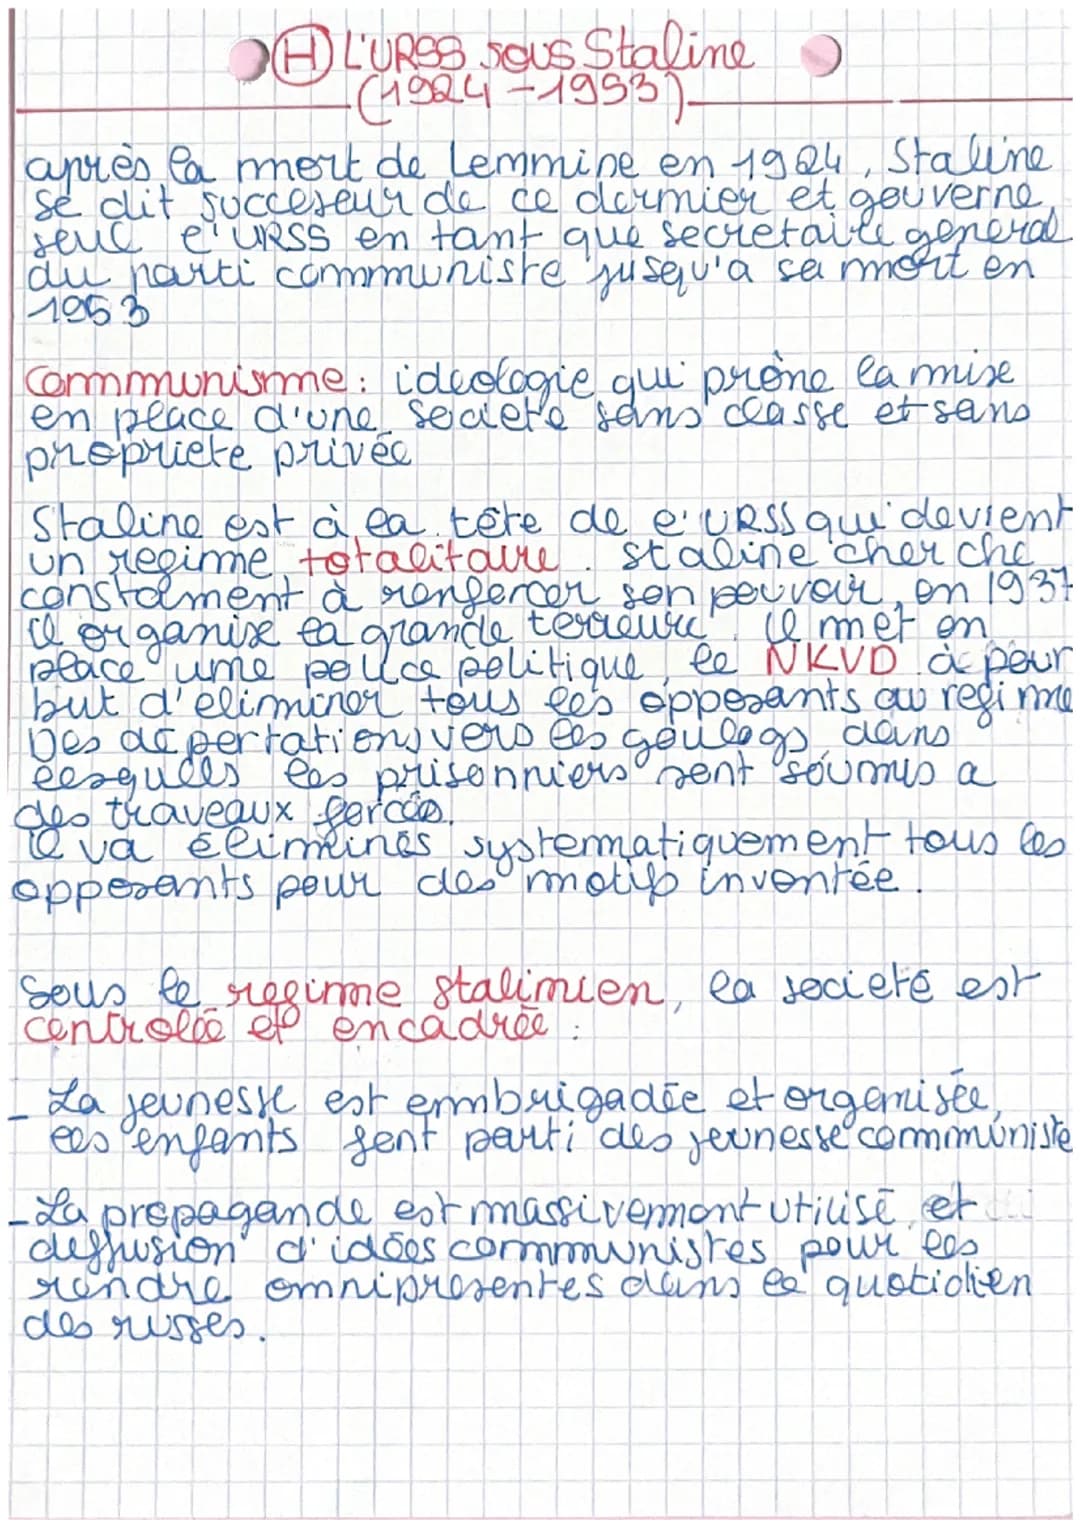 (H) L'URSS sous Staline
(1924-1953)
après la mort de Lemmine en 1924, Staline
se dit succeseur de ce dernier et gouverne
seul l'URSS en tant que secretaire general
du parti communiste jusqu'a sa mort en
1953
Communisme : ideologie qui prône la mise
en place d'une societe sans classe et sans
propriete privée
Staline est à la tête de l'URSS qui devient
un regime totalitaire. Staline cherche
constament à renforcer son pouvoir, en 1937
il organise la grande terreure. Il met en
place une police politique, le NKVD à pour
but d'eliminer tous les opposants au regime
Des deportations vers les goulags, dans
lesquels les prisonniers sont soumis a
des travaux forcés.
Il va éliminés systematiquement tous les
opposants pour des motifs inventée.
Sous le regime stalinien, la societé est
controlée et encadrée :
- La jeunesse est embrigadée et organisée,
les enfants font parti des jeunesse communiste
- La propagande est massivement utilisé, et
deffusion d'idées communistes pour les
rendre omnipresentes dans le quotidien
des russes.